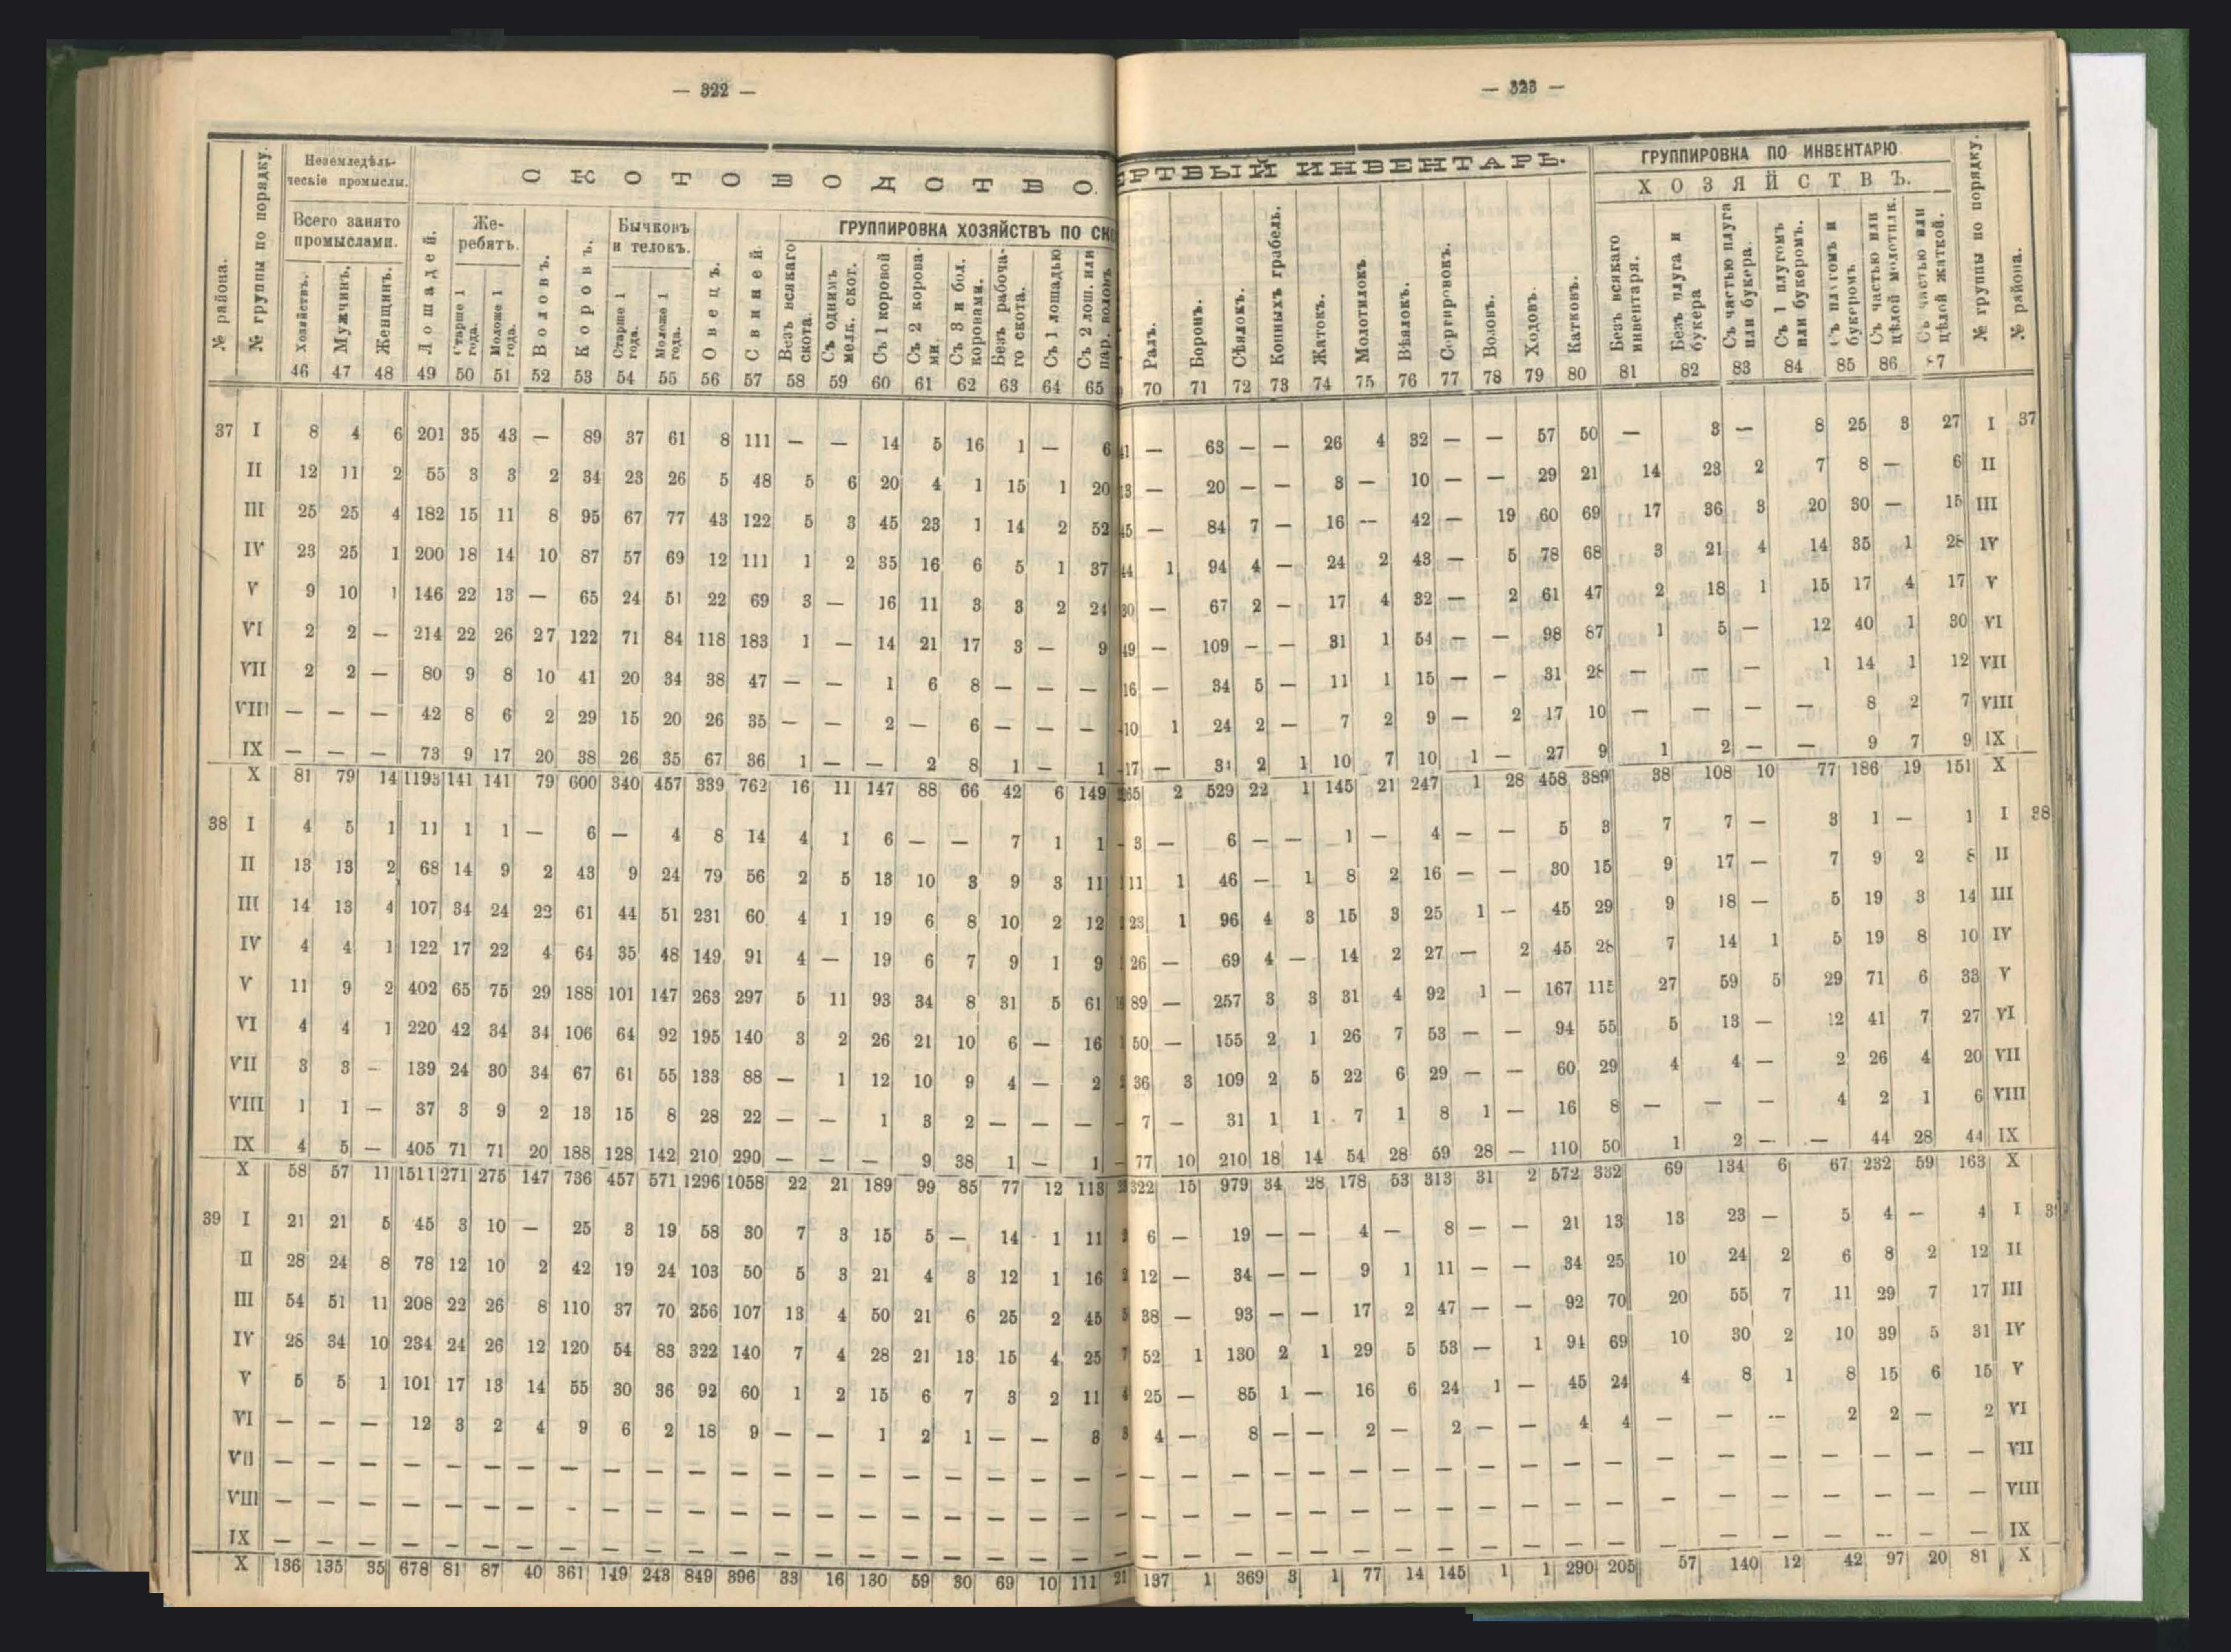 — 322 —
№ района.
№ группы по порядку.
Неземледѣль-
ческіе промыслы.
Всего занято
промыслами.
Хозяйствъ.
Мужчинъ.
Женщинъ.
СКОТОВОДСТВО.
Лошадей.
Же-
ребятъ.
Старше 1
года.
Моложе 1
года.
Воловъ.
Коровъ.
Бычковъ
и телокъ.
Старше 1
года.
Моложе 1
года.
Овецъ.
Свиней.
ГРУППИРОВКА ХОЗЯЙСТВЪ ПО
Безъ всякаго
скота.
Съ однимъ
мелк. скот.
Съ 1 коровой
Съ 2 корова-
ми.
Съ 3 и бол.
коровами.
Безъ рабоча-
го скота.
Съ 1 лошадью
Съ 2 лош. или
пар. воловъ
46 47 48 49 50 51 52 53 54 55 56 57 58 59 60 61 62 63 64 65
37 I 8 4 6 201 35 43 — 89 37 61 8 111 — — 14 5 16 1 — 6
II 12 11 2 55 3 3 2 34 23 26 5 48 5 6 20 4 1 15 1 20
III 25 25 4 182 15 11 8 95 67 77 43 122 5 3 45 23 1 14 2 52
IV 23 25 1 200 18 14 10 87 57 69 12 111 1 2 35 16 6 5 1 37
V 9 10 1 146 22 13 — 65 24 51 22 69 3 — 16 11 3 3 2 24
VI 2 2 — 214 22 26 27 122 71 84 118 183 1 — 14 21 17 3 — 9
VII 2 2 — 80 9 8 10 41 20 34 38 47 — — 1 6 8 — — —
VIII — — — 42 8 6 2 29 15 20 26 35 — — 2 — 6 — — —
IX — — — 73 9 17 20 38 26 35 67 36 1 — — 2 8 1 — 1
X 81 79 14 1193 141 141 79 600 340 457 339 762 16 11 147 88 66 42 6 149
38 I 4 5 1 11 1 1 — 6 — 4 8 14 4 1 6 — — 7 1 1
II 13 13 2 68 14 9 2 43 9 24 79 56 2 5 13 10 3 9 3 11
III 14 13 4 107 34 24 22 61 44 51 231 60 4 1 19 6 8 10 2 12
IV 4 4 1 122 17 22 4 64 35 48 149 91 4 — 19 6 7 9 1 9
V 11 9 2 402 65 75 29 188 101 147 263 297 5 11 93 34 8 31 5 61
VI 4 4 1 220 42 34 34 106 64 92 195 140 3 2 26 21 10 6 — 16
VII 3 3 — 139 24 30 34 67 61 55 133 88 — 1 12 10 9 4 — 2
VIII 1 1 — 37 3 9 2 13 15 8 28 22 — — 1 3 2 — — —
IX 4 5 — 405 71 71 20 188 128 142 210 290 — — — 9 38 1 — 1
X 58 57 11 1511 271 275 147 736 457 571 1296 1058 22 21 189 99 85 77 12 113
39 I 21 21 5 45 3 10 — 25 3 19 58 30 7 3 15 5 — 14 1 11
II 28 24 8 78 12 10 2 42 19 24 103 50 5 3 21 4 3 12 1 16
III 54 51 11 208 22 26 8 110 37 70 256 107 13 4 50 21 6 25 2 45
IV 28 34 10 234 24 26 12 120 54 83 322 140 7 4 28 21 13 15 4 25
V 5 5 1 101 17 13 14 55 30 36 92 60 1 2 15 6 7 3 2 11
VI — — — 12 3 2 4 9 6 2 18 9 — — 1 2 1 — — 3
VII — — — — — — — — — — — — — — — — — — — —
VIII — — — — — — — — — — — — — — — — — — — —
IX — — — — — — — — — — — — — — — — — — — —
X 136 135 35 678 81 87 40 361 149 243 849 396 33 16 130 59 30 69 10 111
— 323 —
РТВЫЙ ИНВЕНТАРЬ.
Ралъ.
Боронъ.
Сѣялокъ.
Конныхъ грабель.
Жатокъ.
Молотилокъ
Вѣялокъ.
Сортировокъ.
Возовъ.
Ходовъ.
Катковъ.
ГРУППИРОВКА ПО ИНВЕНТАРЮ
ХОЗЯЙСТВЪ.
Безъ всякаго
инвентаря.
Безъ плуга и
букера
Съ частью плуга
или букера.
Съ 1 плугомъ
или букеромъ.
Съ плугомъ и
букеромъ.
Съ частью или
цѣлой молотилк.
Съ частью или
цѣлой жаткой.
№ группы по порядку.
№ района.
70 71 72 73 74 75 76 77 78 79 80 81 82 83 84 85 86 87
41 — 63 — — 26 4 32 — — 57 50 — 3 — 8 25 3 27 I 37
13 — 20 — — 8 — 10 — — 29 21 14 23 2 7 8 — 6 II
45 — 84 7 — 16 — 42 — 19 60 69 17 36 3 20 30 — 15 III
44 1 94 4 — 24 2 43 — 5 78 68 3 21 4 14 35 1 28 IV
30 — 67 2 — 17 4 32 — 2 61 47 2 18 1 15 17 4 17 V
49 — 109 — — 31 1 54 — — 98 87 1 5 — 12 40 1 30 VI
16 — 34 5 — 11 1 15 — — 31 28 — — — 1 14 1 12 VII
10 1 24 2 — 7 2 9 — 2 17 10 — — — — 8 2 7 VIII
17 — 34 2 1 10 7 10 1 — 27 9 1 2 — — 9 7 9 IX
265 2 529 22 1 145 21 247 1 28 458 389 38 108 10 77 186 19 151 X
3 — 6 — — 1 — 4 — — 5 3 7 7 — 3 1 — 1 I 38
11 1 46 — 1 8 2 16 — — 30 15 9 17 — 7 9 2 8 II
23 1 96 4 3 15 3 25 1 — 45 29 9 18 — 5 19 3 14 III
26 — 69 4 — 14 2 27 — 2 45 28 7 14 1 5 19 8 10 IV
89 — 257 3 3 31 4 92 1 — 167 115 27 59 5 29 71 6 33 V
50 — 155 2 1 26 7 53 — — 94 55 5 13 — 12 41 7 27 VI
36 3 109 2 5 22 6 29 — — 60 29 4 4 — 2 26 4 20 VII
7 — 31 1 1 7 1 8 1 — 16 8 — — — 4 2 1 6 VIII
77 10 210 18 14 54 28 59 28 — 110 50 1 2 — — 44 28 44 IX
322 15 979 34 28 178 53 313 31 2 572 332 69 134 6 67 232 59 163 X
6 — 19 — — 4 — 8 — — 21 13 13 23 — 5 4 — 4 I
12 — 34 — — 9 1 11 — — 34 25 10 24 2 6 8 2 12 II
38 — 93 — — 17 2 47 — — 92 70 20 55 7 11 29 7 17 III
52 1 130 2 1 29 5 53 — 1 94 69 10 30 2 10 39 5 31 IV
25 — 85 1 — 16 6 24 1 — 45 24 4 8 1 8 15 6 15 V
4 — 8 — — 2 — 2 — — 4 4 — — — 2 2 — 2 VI
— — — — — — — — — — — — — — — — — — — VII
— — — — — — — — — — — — — — — — — — — VIII
— — — — — — — — — — — — — — — — — — IX
137 1 369 3 1 77 14 145 1 1 290 205 57 140 12 42 97 20 81 X